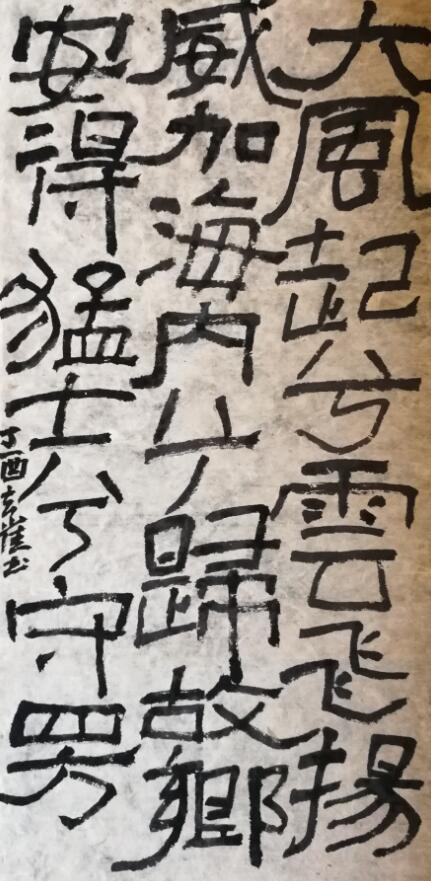 大風起兮雲飞揚
威加海内兮歸故鄉
安得猛士兮守四方
丁酉崔书